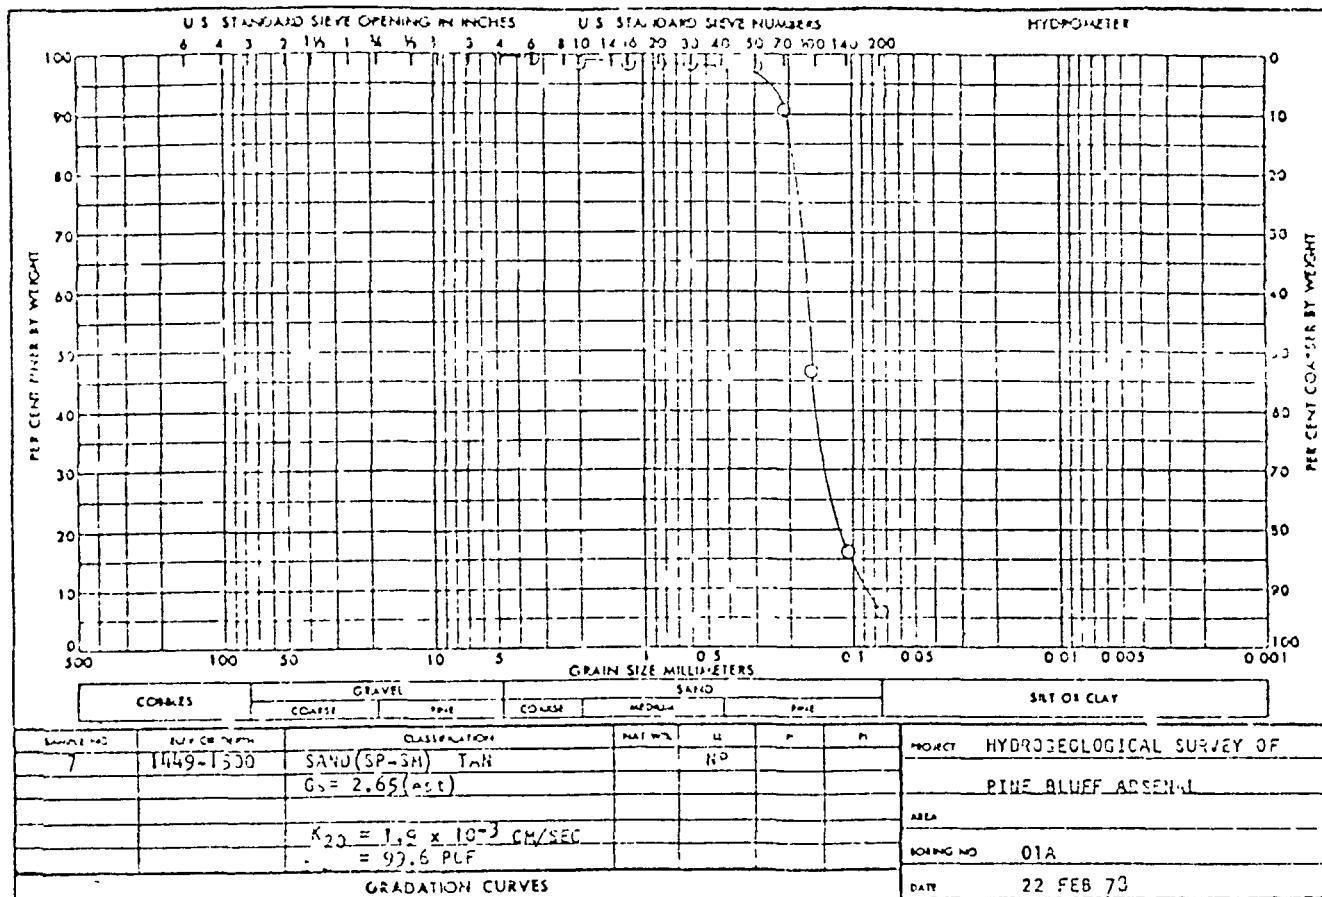 U.S. STANDARD SIEVE OPENING IN INCHES U.S. STANDARD SIEVE NUMBERS HYDROMETER
6 4 3 2 1½ 1 ¾ ½ 3 4 6 8 10 14 16 20 30 40 50 70 100 140 200
100 0
90 10
80 20
70 30
60 40
50
40
30 70
20
10 90
0 100
PER CENT FINER BY WEIGHT
PER CENT COARSER BY WEIGHT
100 50 10 5 1 0.5 0.1 0.05 0.01 0.005 0.001
GRAIN SIZE MILLIMETERS
COBBLES GRAVEL SAND SILT OR CLAY
COARSE FINE COARSE MEDIUM FINE
SAMPLE NO ELEV OR DEPTH CLASSIFICATION NAT W% LL PL PI
7 SAND(SP-SM) TAN NP
GS= 2.65(est)
K20 = x 10-3 CM/SEC
= PCF
GRADATION CURVES
PROJECT HYDROGEOLOGICAL SURVEY OF
PINE BLUFF ARSENAL
AREA
BORING NO 01A
DATE 22 FEB